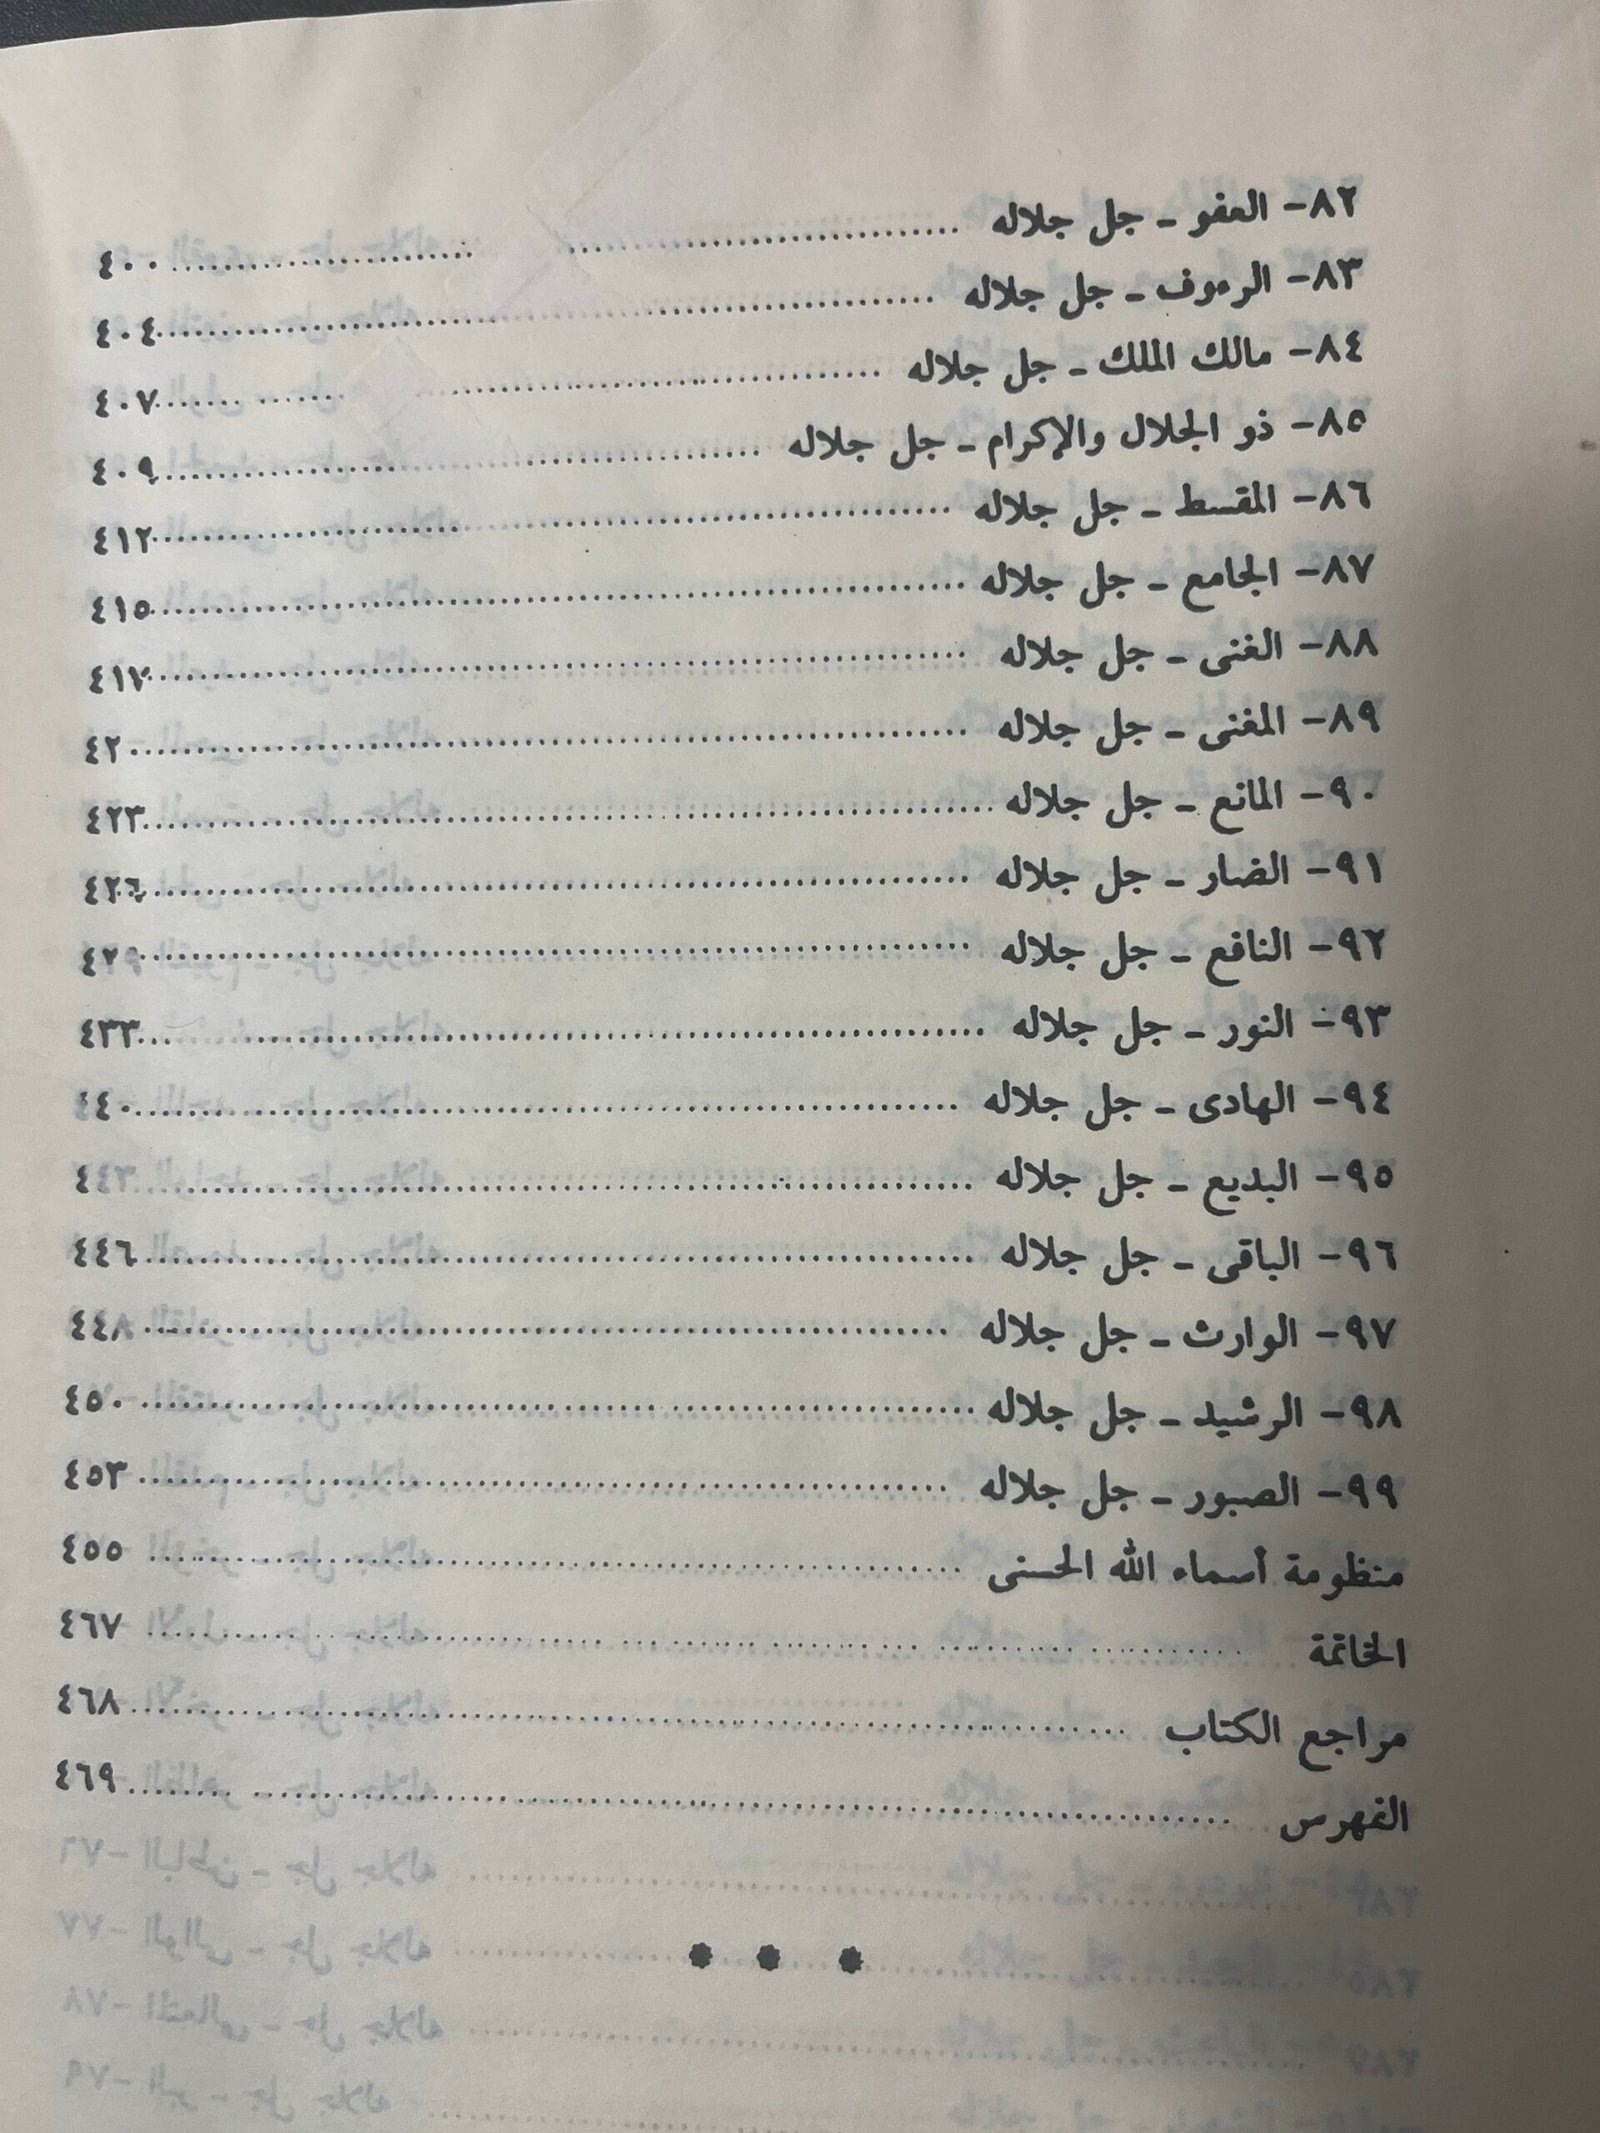 ٨٢- العفو - جل جلاله .......... ٤٠٠
٨٣- الرءوف - جل جلاله .......... ٤٠٤
٨٤- مالك الملك - جل جلاله .......... ٤٠٧
٨٥- ذو الجلال والإكرام - جل جلاله .......... ٤٠٩
٨٦- المقسط - جل جلاله .......... ٤١٢
٨٧- الجامع - جل جلاله .......... ٤١٥
٨٨- الغنى - جل جلاله .......... ٤١٧
٨٩- المغنى - جل جلاله .......... ٤٢٠
٩٠- المانع - جل جلاله .......... ٤٢٣
٩١- الضار - جل جلاله .......... ٤٢٦
٩٢- النافع - جل جلاله .......... ٤٢٩
٩٣- النور - جل جلاله .......... ٤٣٣
٩٤- الهادى - جل جلاله .......... ٤٤٠
٩٥- البديع - جل جلاله .......... ٤٤٣
٩٦- الباقى - جل جلاله .......... ٤٤٦
٩٧- الوارث - جل جلاله .......... ٤٤٨
٩٨- الرشيد - جل جلاله .......... ٤٥٠
٩٩- الصبور - جل جلاله .......... ٤٥٣
منظومة أسماء الله الحسنى .......... ٤٥٥
الخاتمة .......... ٤٦٧
مراجع الكتاب .......... ٤٦٨
الفهرس .......... ٤٦٩